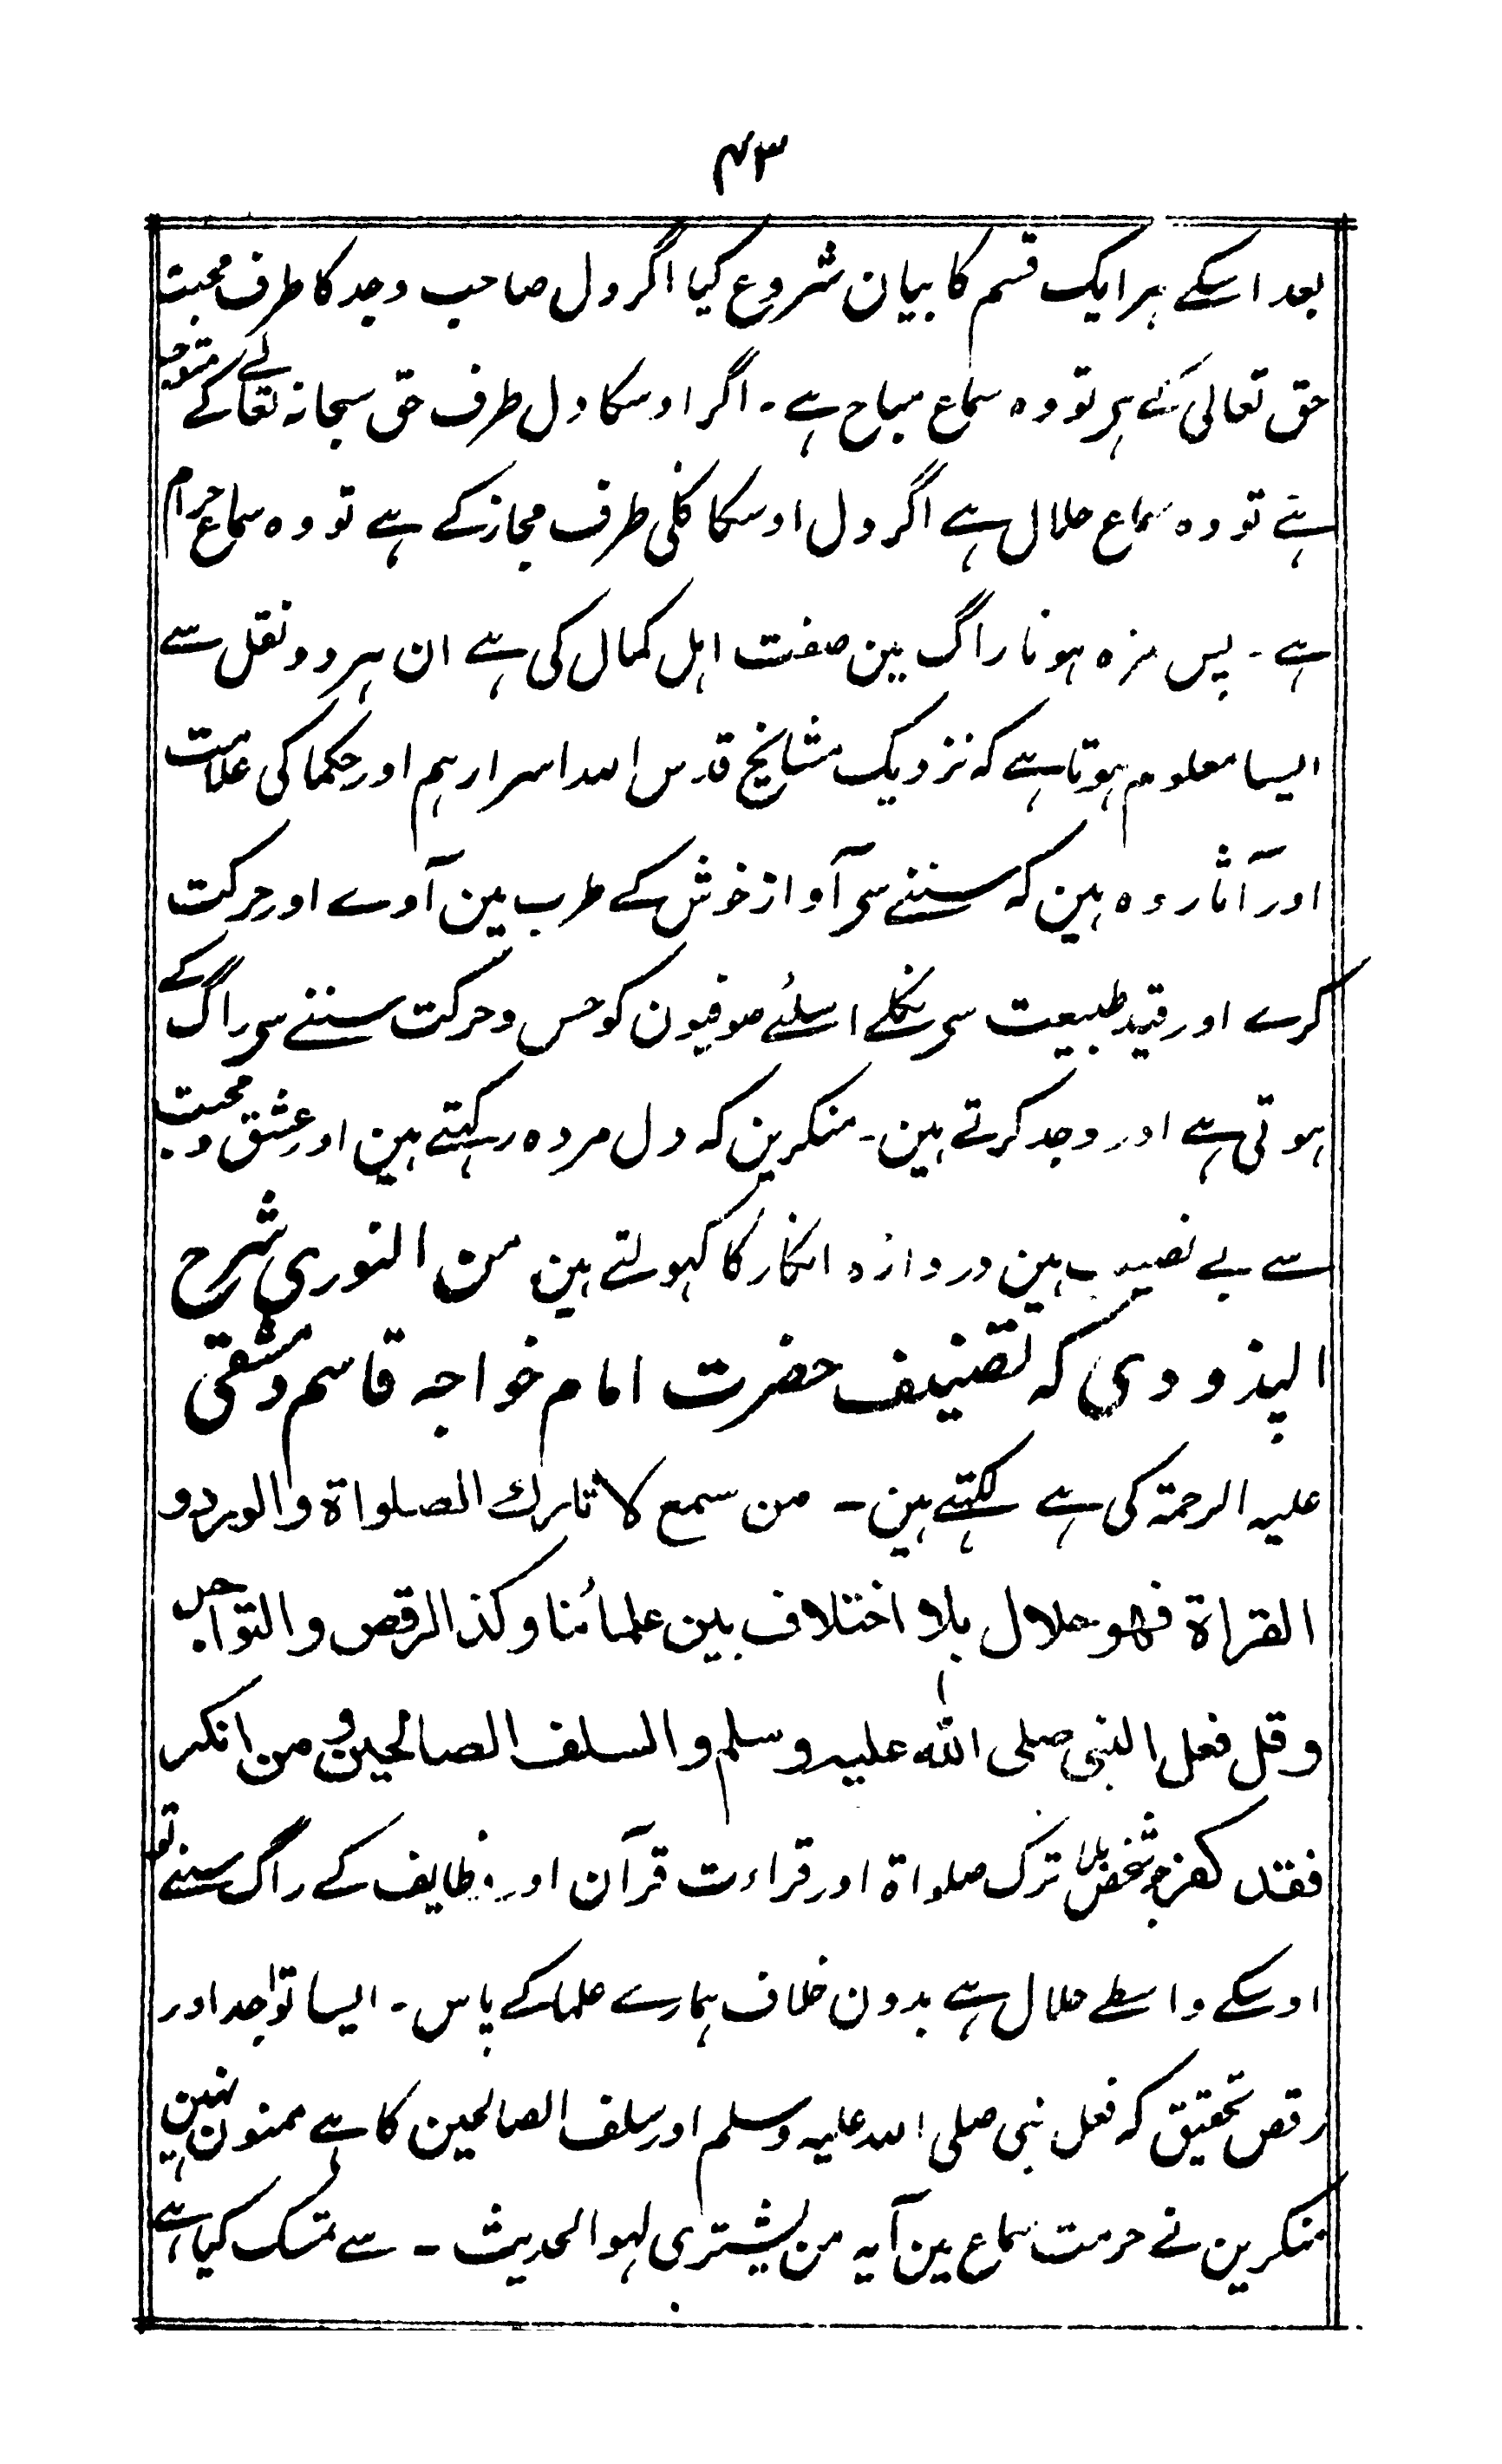 ۴۳
بعد اسکے ہر ایک قسم کا بیان شروع کیا اگر دل صاحب وجد کا طرف محبت
حق تعالی کے ہی تو وہ سماع مباح ہے ۔ اگر اوسکا دل طرف حق سبحانہ تعالے کے متوجہ
ہے تو وہ سماع حلال ہے اگر دل اوسکا کلی طرف مجاز کے ہے تو وہ سماع حرام
ہے ۔ پس مزہ ہونا راگ مین صفت اہل کمال کی ہے ان ہر دو نقل سے
ایسا معلوم ہوتا ہے کہ نزدیک مشایخ قدس اللہ اسرارہم اور حکما کی علامت
اور آثار وہ ہین کہ سننے سی آواز خوش کے طرب مین آوے اور حرکت
کرے اور قید طبیعت سی نکلے اسلئے صوفیون کو حس و حرکت سننے سی راگ کے
ہوتی ہے اور وجد کرتے ہین ۔ منکرین کہ دل مردہ رکہتے ہین اور عشق و محبت
سے بے نصیب ہین دروازہ انکار کا کہولتے ہین من النوری شرح
البزودی کہ تصنیف حضرت امام خواجہ قاسم دمشقی
علیہ الرحمۃ کی ہے لکہتے ہین ۔ من سمع لا تارك الصلواة والورد و
القراة فهو حلال بلا اختلاف بين علمائنا وكذ الرقص والتواجد
وقد فعل النبی صلی الله علیہ وسلم والسلف الصالحین و من انکر
فقد کفر جو شخص بلا ترک صلواۃ اور قراءت قرآن اور وظایف کے راگ سنے تو
اوسکے واسطے حلال ہے بدون خلاف ہمارے علما کے پاس ۔ ایسا تواجد اور
رقص تحقیق کہ فعل نبی صلی اللہ علیہ وسلم اور سلف الصالحین کا ہے ممنون نہین ہے
منکرین نے حرمت سماع مین آیہ من یشتری لہو الحدیث ۔ سے تمسک کیا ہے